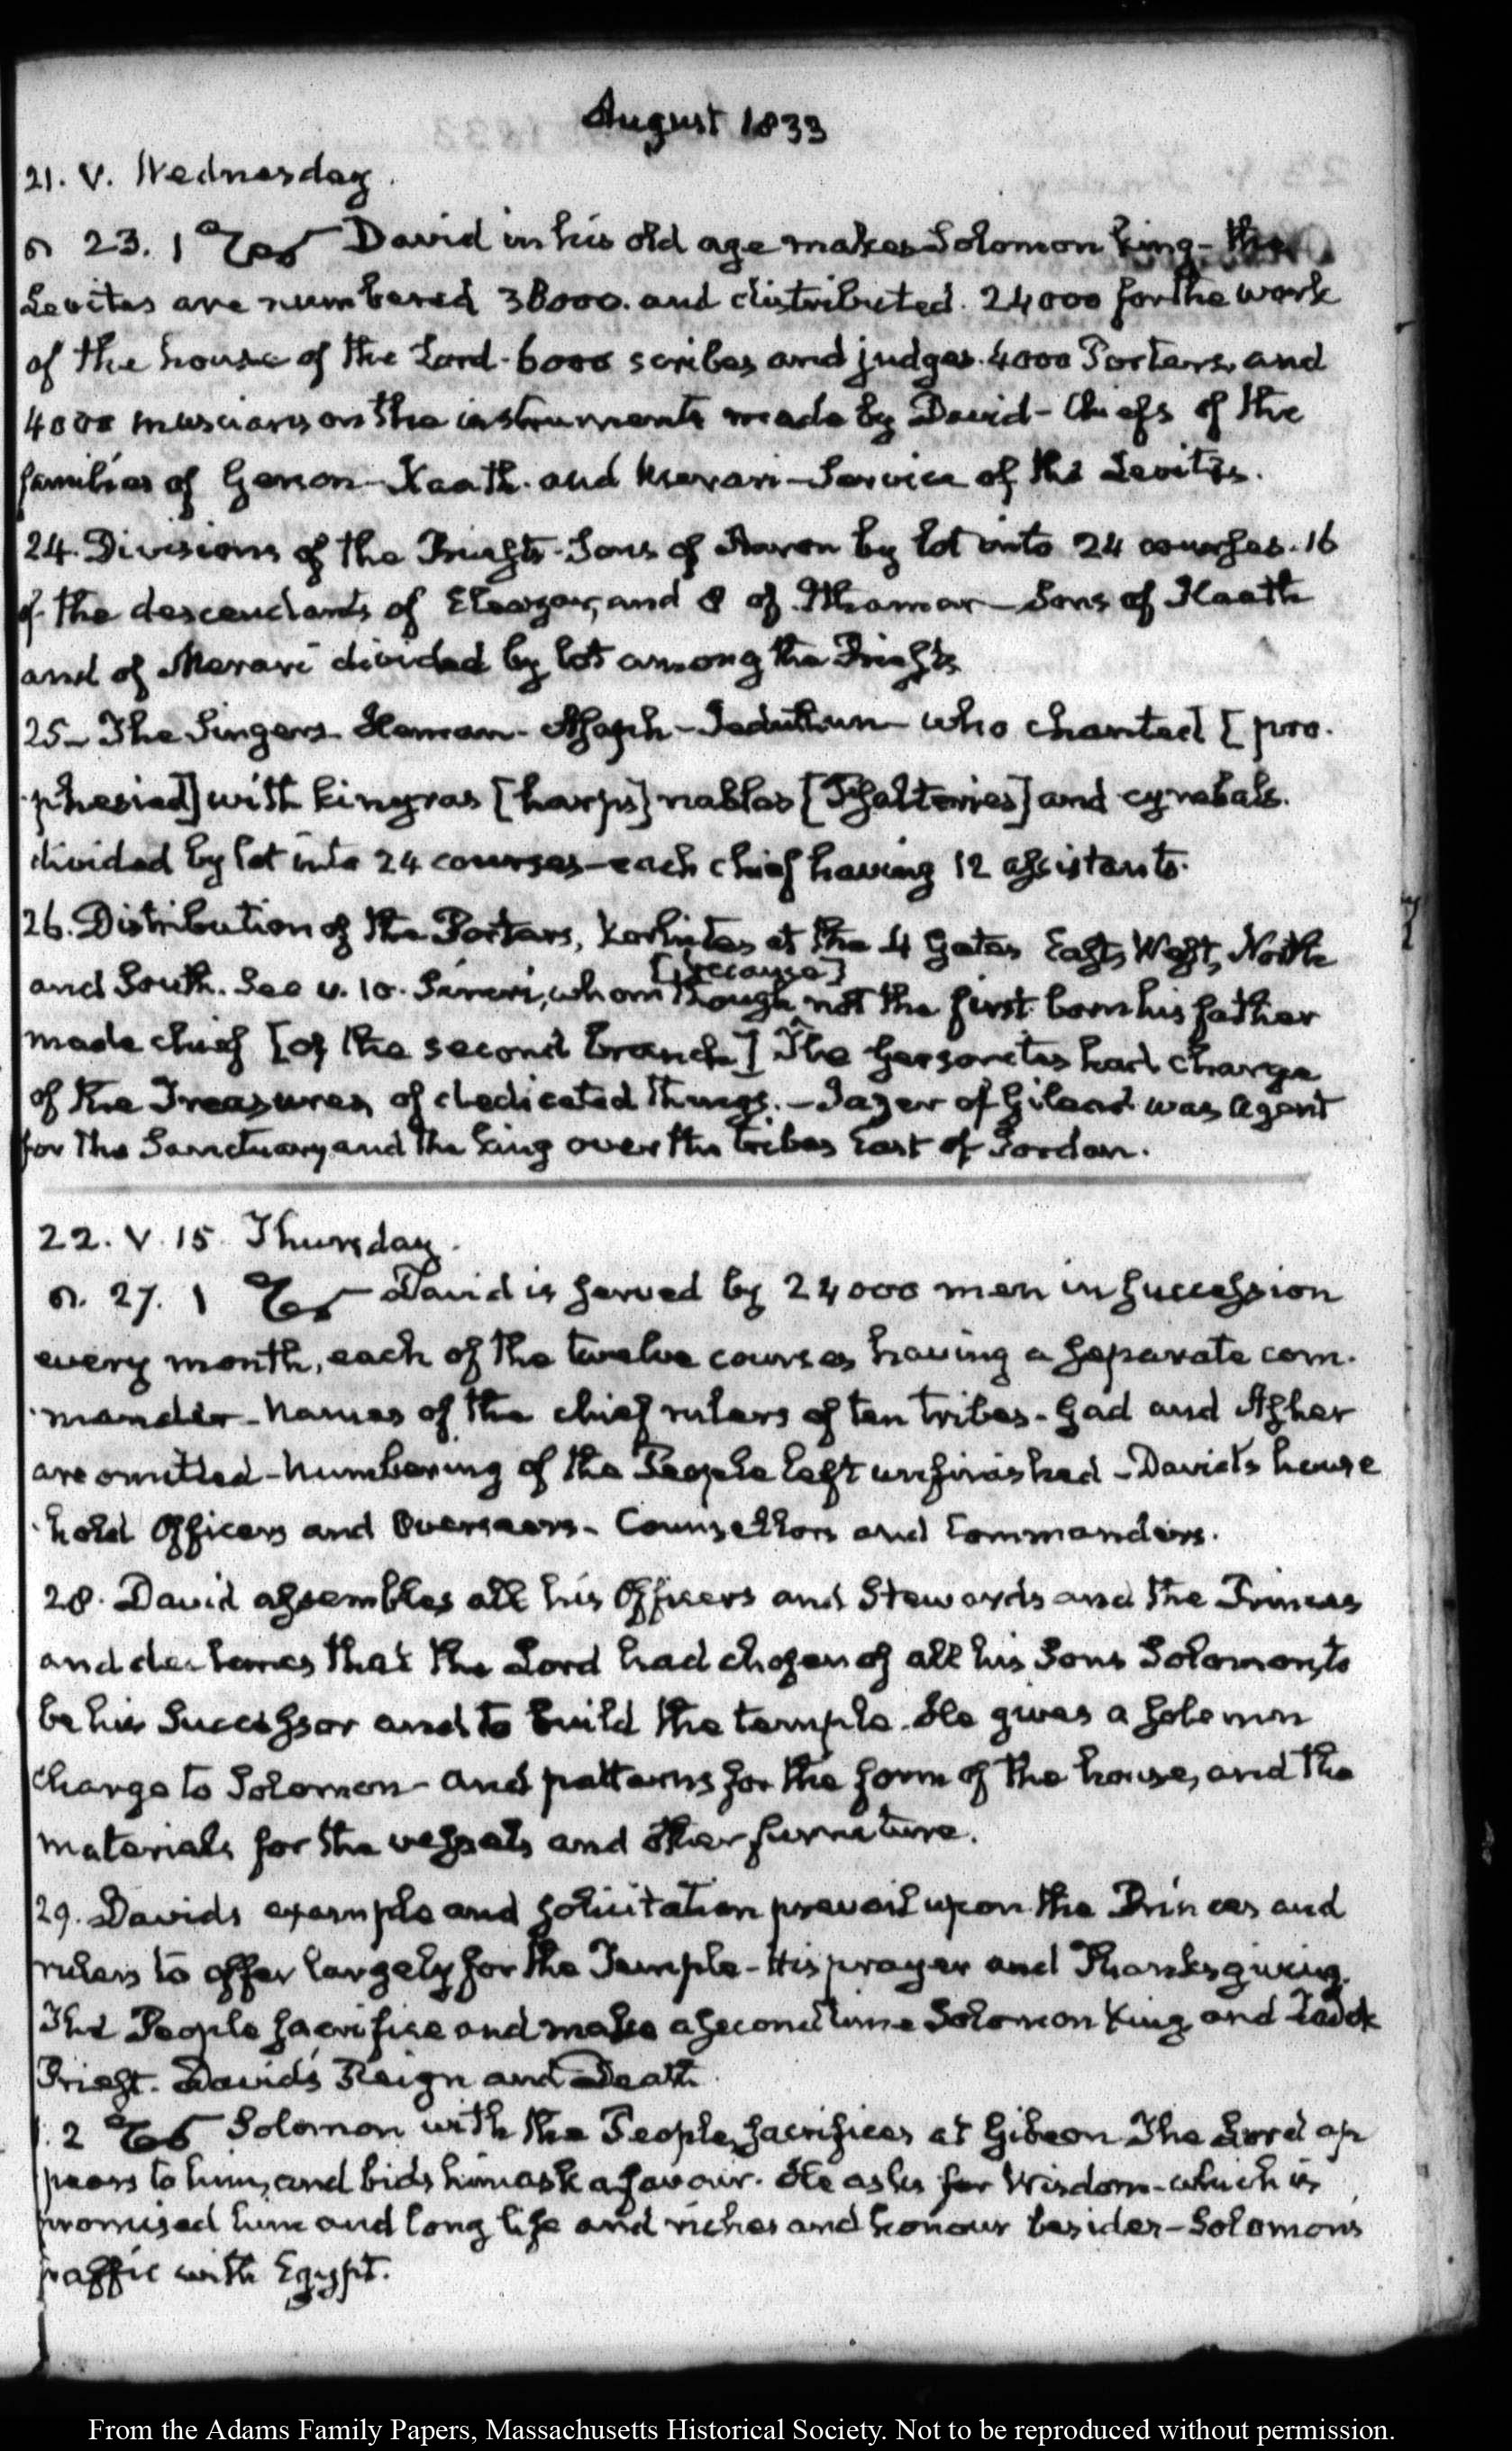 August 1833
21. V. Wednesday.
23. 1 David in his old age makes Solomon king - the
Levites are numbered 38000. and distributed. 24000 for the work
of the house of the Lord - 6000 scribes and judges. 4000 Porters, and
4000 musicians on the instruments made by David - Chiefs of the
families of Gerson - Kaath. and Merari - Service of the Levites.
24. Divisions of the Priests - Sons of Aaron by lot into 24 courses. 16
of the descendants of Eleazar, and 8 of Ithamar - Sons of Kaath
and of Merari divided by lot among the Priests
25 - The Singers Heman - Asaph - Jeduthun - who chanted [pro-
-phesied] with kinyras [harps] nablas [Psalteries] and cymbals.
divided by lot into 24 courses - each chief having 12 assistants.
26. Distribution of the Porters, Korhites at the 4 Gates East, West, North
and South. See v. 10. Simri, whom though [because] not the first born his father
made chief [of the second branch] The Gersonites had charge
of the Treasures of dedicated things. - Jazer of Gilead was Agent
for the Sanctuary and the King over the tribes East of Jordan.
22. V. 15. Thursday.
27. 1 David is served by 24000 men in succession
every month, each of the twelve courses having a separate com-
-mander - Names of the chief rulers of ten tribes - Gad and Asher
are omitted - Numbering of the People left unfinished - David's house
-hold Officers and Overseers - Counsellors and Commanders.
28. David assembles all his Officers and Stewards and the Princes
and declares that the Lord had chosen of all his Sons Solomon, to
be his Successor and to build the temple. He gives a solemn
charge to Solomon - and patterns for the form of the house, and the
materials for the vessels and other furniture.
29. Davids example and solicitation prevail upon the Princes and
rulers to offer largely for the Temple - His prayer and Thanksgiving.
The People sacrifise and make a second time Solomon King and Zadok
Priest. David's Reign and Death.
1. 2 Solomon with the People, sacrifices at Gibeon The Lord ap
pears to him, and bids him ask a favour. He asks for Wisdom - which is
promised him and long life and riches and honour besides - Solomon's
traffic with Egypt.
From the Adams Family Papers, Massachusetts Historical Society. Not to be reproduced without permission.